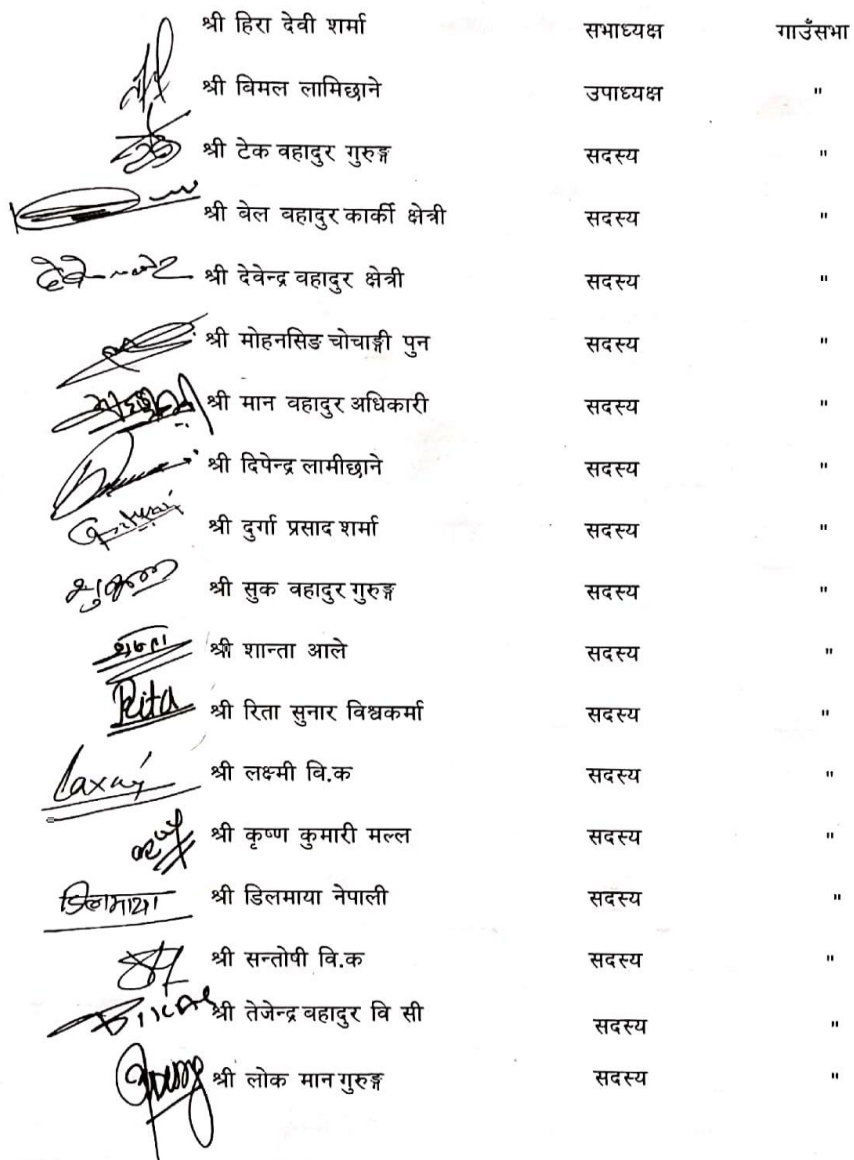 श्री हिरा देवी शर्मा सभाध्यक्ष गाउँसभा
श्री विमल लामिछाने उपाध्यक्ष "
श्री टेक वहादुर गुरुङ्ग सदस्य "
श्री बेल वहादुर कार्की क्षेत्री सदस्य "
श्री देवेन्द्र वहादुर क्षेत्री सदस्य "
श्री मोहनसिङ चोचाङ्गी पुन सदस्य "
श्री मान वहादुर अधिकारी सदस्य "
श्री दिपेन्द्र लामीछाने सदस्य "
श्री दुर्गा प्रसाद शर्मा सदस्य "
श्री सुक वहादुर गुरुङ्ग सदस्य "
श्री शान्ता आले सदस्य "
Rita श्री रिता सुनार विश्वकर्मा सदस्य "
Laxmi श्री लक्ष्मी वि.क सदस्य "
श्री कृष्ण कुमारी मल्ल सदस्य "
डिलमाया श्री डिलमाया नेपाली सदस्य "
श्री सन्तोषी वि.क सदस्य "
श्री तेजेन्द्र वहादुर वि सी सदस्य "
श्री लोक मान गुरुङ्ग सदस्य "